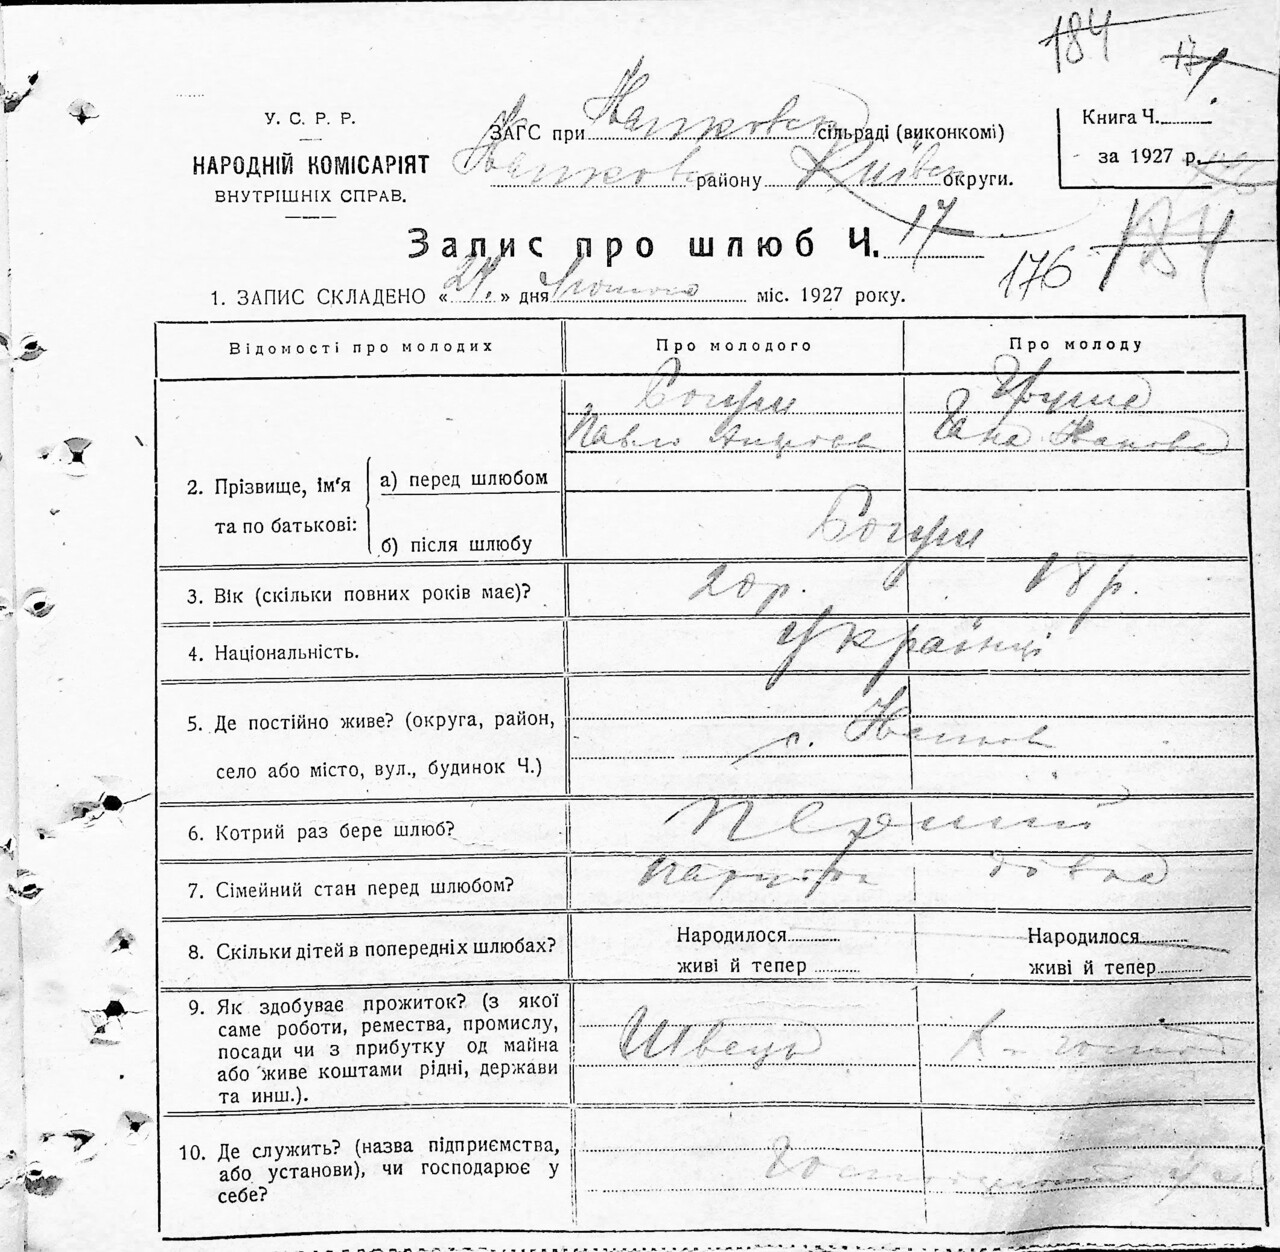 184
17
У. С. Р. Р.
НАРОДНІЙ КОМІСАРІЯТ
ВНУТРІШНІХ СПРАВ.
ЗАГС при сільраді (виконкомі)
району Київськ округи.
Книга Ч.
за 1927 р.
Запис про шлюб Ч. 17
176 184
1. ЗАПИС СКЛАДЕНО « 24. » дня Лютого міс. 1927 року.
Відомості про молодих Про молодого Про молоду
2. Прізвище, ім'я та по батькові:
а) перед шлюбом
Павло Ганна Іванова
б) після шлюбу
3. Вік (скільки повних років має)? 20 р. 18 р.
4. Національність. Українці
5. Де постійно живе? (округа, район,
село або місто, вул., будинок Ч.) с.
6. Котрий раз бере шлюб? Перший
7. Сімейний стан перед шлюбом? парубок дівка
8. Скільки дітей в попередніх шлюбах? Народилося Народилося
живі й тепер живі й тепер
9. Як здобуває прожиток? (з якої
саме роботи, ремества, промислу,
посади чи з прибутку од майна
або живе коштами рідні, держави
та инш.). Швець
10. Де служить? (назва підприємства,
або установи), чи господарює у
себе?